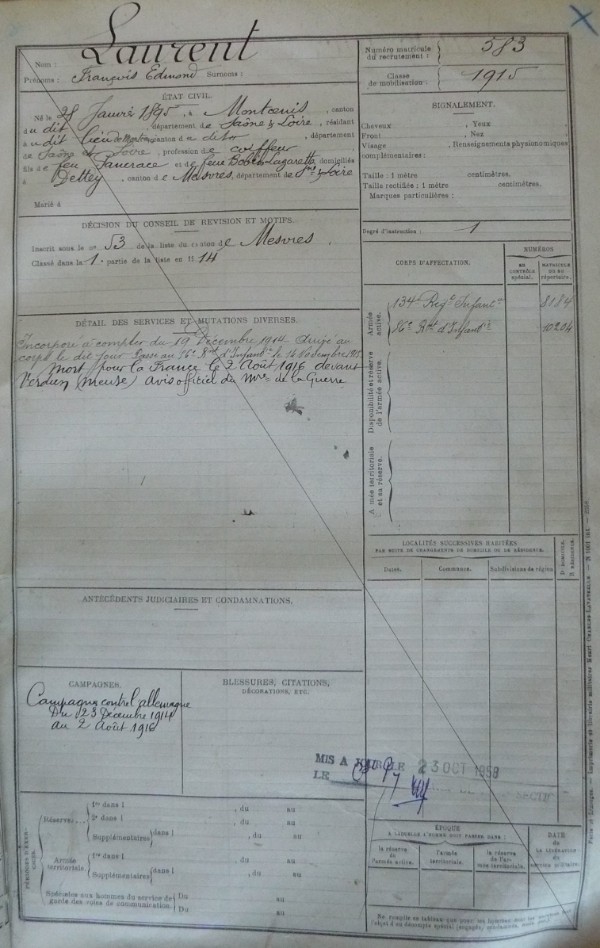 Nom : Laurent
Prénoms : François Edmond Surnoms :
Numéro matricule du recrutement : 583
Classe de mobilisation : 1915
ÉTAT CIVIL.
Né le 25 Janvier 1895, à Montcenis, canton
du dit, département de Saône & Loire, résidant
à u dit lieu canton d u dito, département
de Saône et Loire, profession de coiffeur
fils de feu Pancrace et de feue domiciliés
à Dettey, canton de Mesvres, département de Sne & Loire
Marié à
SIGNALEMENT.
Cheveux , Yeux
Front , Nez
Visage , Renseignements physionomiques
complémentaires :
Taille : 1 mètre centimètres.
Taille rectifiée : 1 mètre centimètres.
Marques particulières :
DÉCISION DU CONSEIL DE REVISION ET MOTIFS.
Inscrit sous le no 53 de la liste du canton de Mesvres.
Classé dans la 1e partie de la liste en 1914
Degré d'instruction : 1
DÉTAIL DES SERVICES ET MUTATIONS DIVERSES.
Incorporé à compter du 19 Décembre 1914. dirigé au
corps le dit jour Passé au 56e Rgt d'Infantie le 16 Novembre 1915.
Mort pour la France le 2 Août 1916 devant
Verdun (Meuse) avis officiel du Mre de la Guerre
CORPS D'AFFECTATION.
NUMÉROS
AU CONTRÔLE spécial.
MATRICULE OU AU répertoire.
Armée active.
134e Regt Infante 8184
56e Rgt d'Infantie 10204
Disponibilité et réserve de l'armée active.
Armée territoriale et sa réserve.
LOCALITÉS SUCCESSIVES HABITÉES
PAR SUITE DE CHANGEMENTS DE DOMICILE OU DE RÉSIDENCE.
Dates. Communes. Subdivisions de région
D domicile, R résidence.
ANTÉCÉDENTS JUDICIAIRES ET CONDAMNATIONS.
CAMPAGNES.
Campagne contre l'allemagne
Du 23 Décembre 1914
au 2 Août 1916
BLESSURES, CITATIONS,
DÉCORATIONS, ETC.
MIS A JOUR LE 23 OCT 1959
LE
Réserve
1re dans l , du au
2e dans l , du au
Supplémentaires dans l , du au
Armée territoriale
1re dans l , du au
Supplémentaires dans l , du au
Spéciales aux hommes du service de
garde des voies de communication.
Du au
Du au
ÉPOQUE
À LAQUELLE L'HOMME DOIT PASSER DANS :
la réserve de l'armée active.
l'armée territoriale.
la réserve de l'armée territoriale.
DATE de la libération du service militaire.